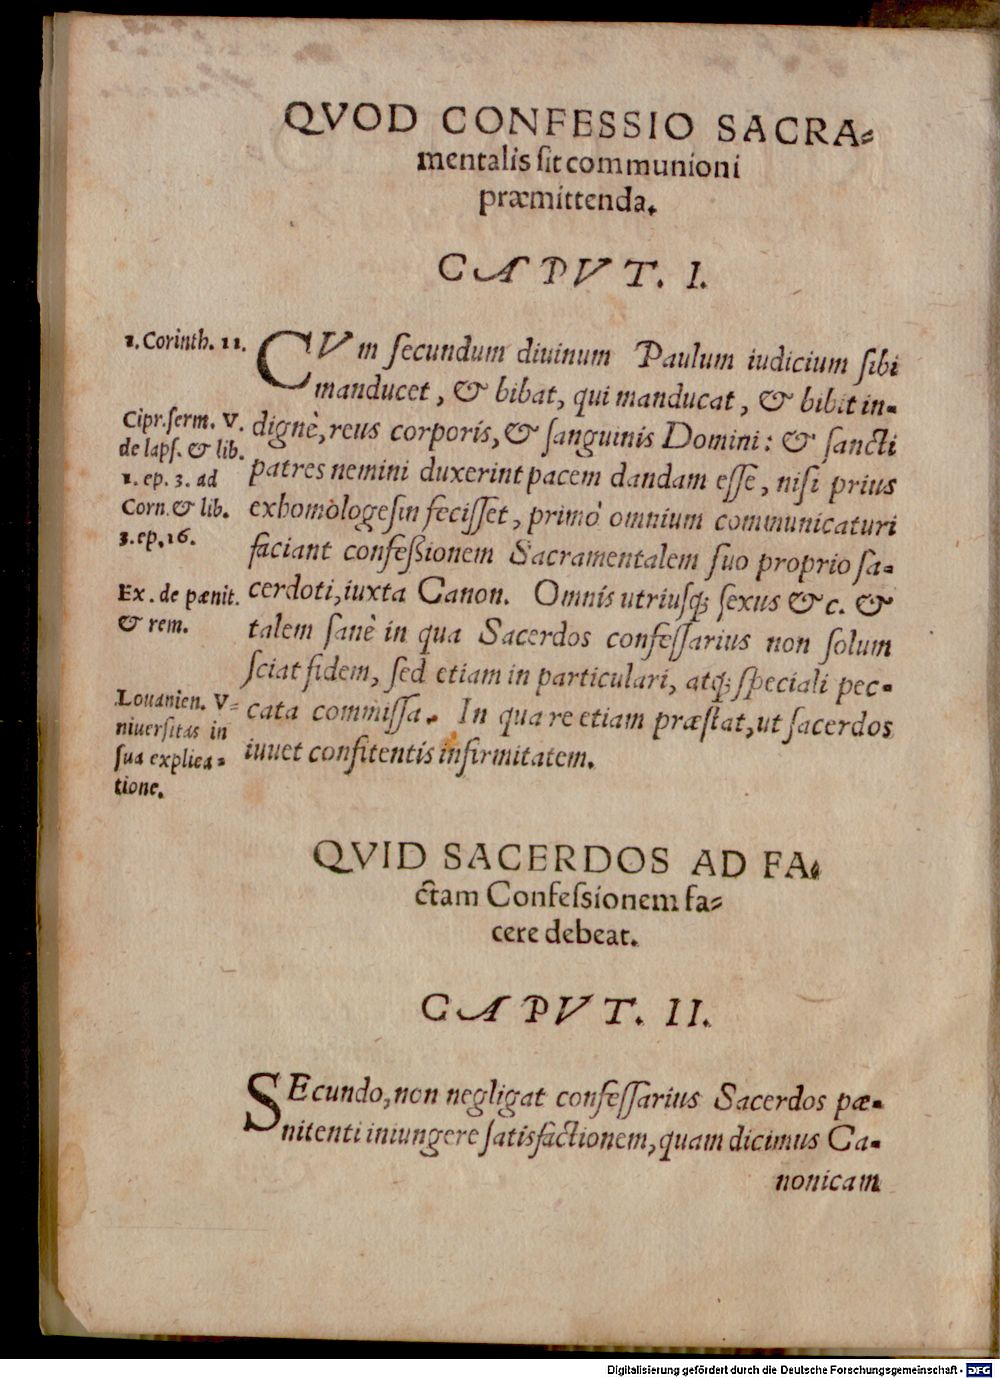 QVOD CONFESSIO SACRA-
mentalis sit communioni
præmittenda.
CAPVT. I.
1. Corinth. 11.
CVm secundum diuinum Paulum iudicium sibi
manducet, & bibat, qui manducat, & bibit in-
dignè, reus corporis, & sanguinis Domini: & sancti
patres nemini duxerint pacem dandam esse, nisi prius
exhomòlogesin fecisset, primò omnium communicaturi
faciant confessionem Sacramentalem suo proprio sa-
cerdoti, iuxta Canon. Omnis utriusq; sexus & c. &
talem sanè in qua Sacerdos confessarius non solum
sciat fidem, sed etiam in particulari, atq; speciali pec-
cata commissa. In qua re etiam præstat, ut sacerdos
iuuet confitentis infirmitatem.
Cipr. serm. V.
de laps. & lib.
1. ep. 3. ad
Corn. & lib.
3. ep. 16.
Ex. de pœnit.
& rem.
Louanien. V-
niuersitas in
sua explica-
tione.
QVID SACERDOS AD FA-
ctam Confessionem fa-
cere debeat.
CAPVT. II.
SEcundo, non negligat confessarius Sacerdos pæ-
nitenti iniungere satisfactionem, quam dicimus Ca-
nonicam
Digitalisierung gefördert durch die Deutsche Forschungsgemeinschaft - DFG